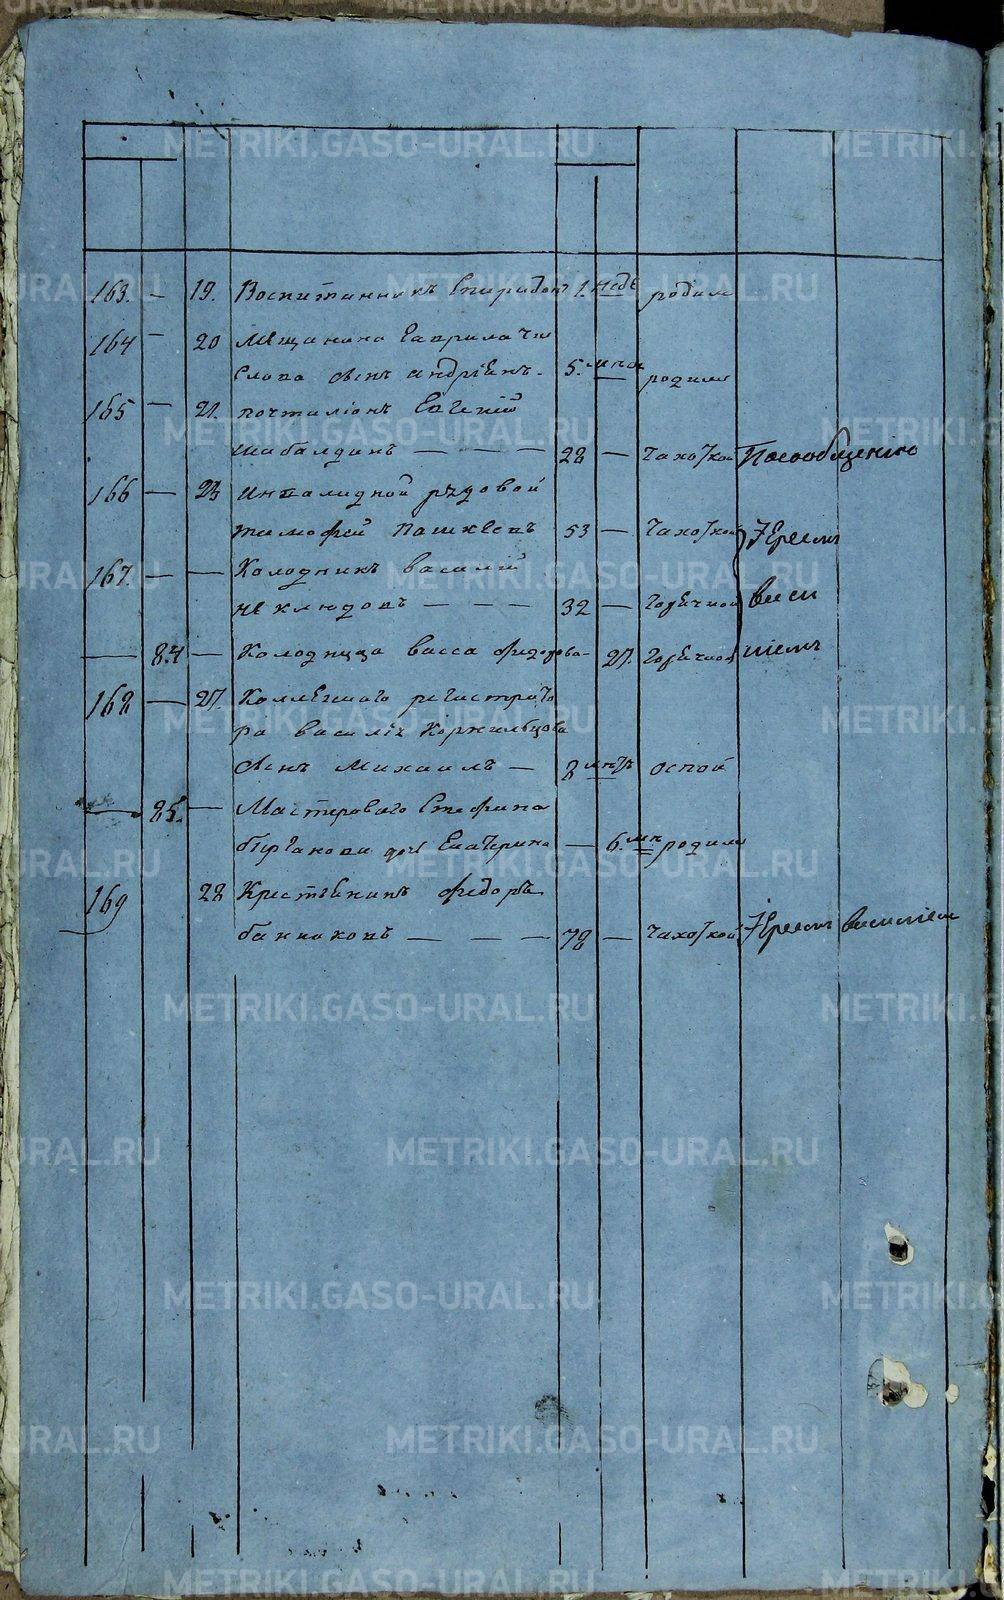 163. — 19. Воспитанникъ Спиридонъ 1. неде родим
164 — 20 Мещанина Гаврила Чи
слова сынъ Андріянъ. 5. родим
165 — 21. почталіонъ Евгений
Шабалдинъ — — — 28 — Чахоткой По сообщенію
166 — 23 инвалидной рядовой
Тимофей Пашкеевъ 53 — Чахоткой Іереемъ
167. — — Колодникъ Василий
Неклюдовъ — — — 32 — Горячкой васи
— 84 — Колодница Васса Федорова — 27. Горячкой ліемъ
168 — 27. Коллежскаго регистрато
ра Василія Коржильцова
сынъ Михаилъ — 8 оспой
— 85. — Мастероваго Стефана
дочь Екатерина — 6. родим
169 28 Крестьянинъ Федоръ
Банниковъ — — — 78 — Чахоткой Іереемъ василіем
METRIKI.GASO-URAL.RU